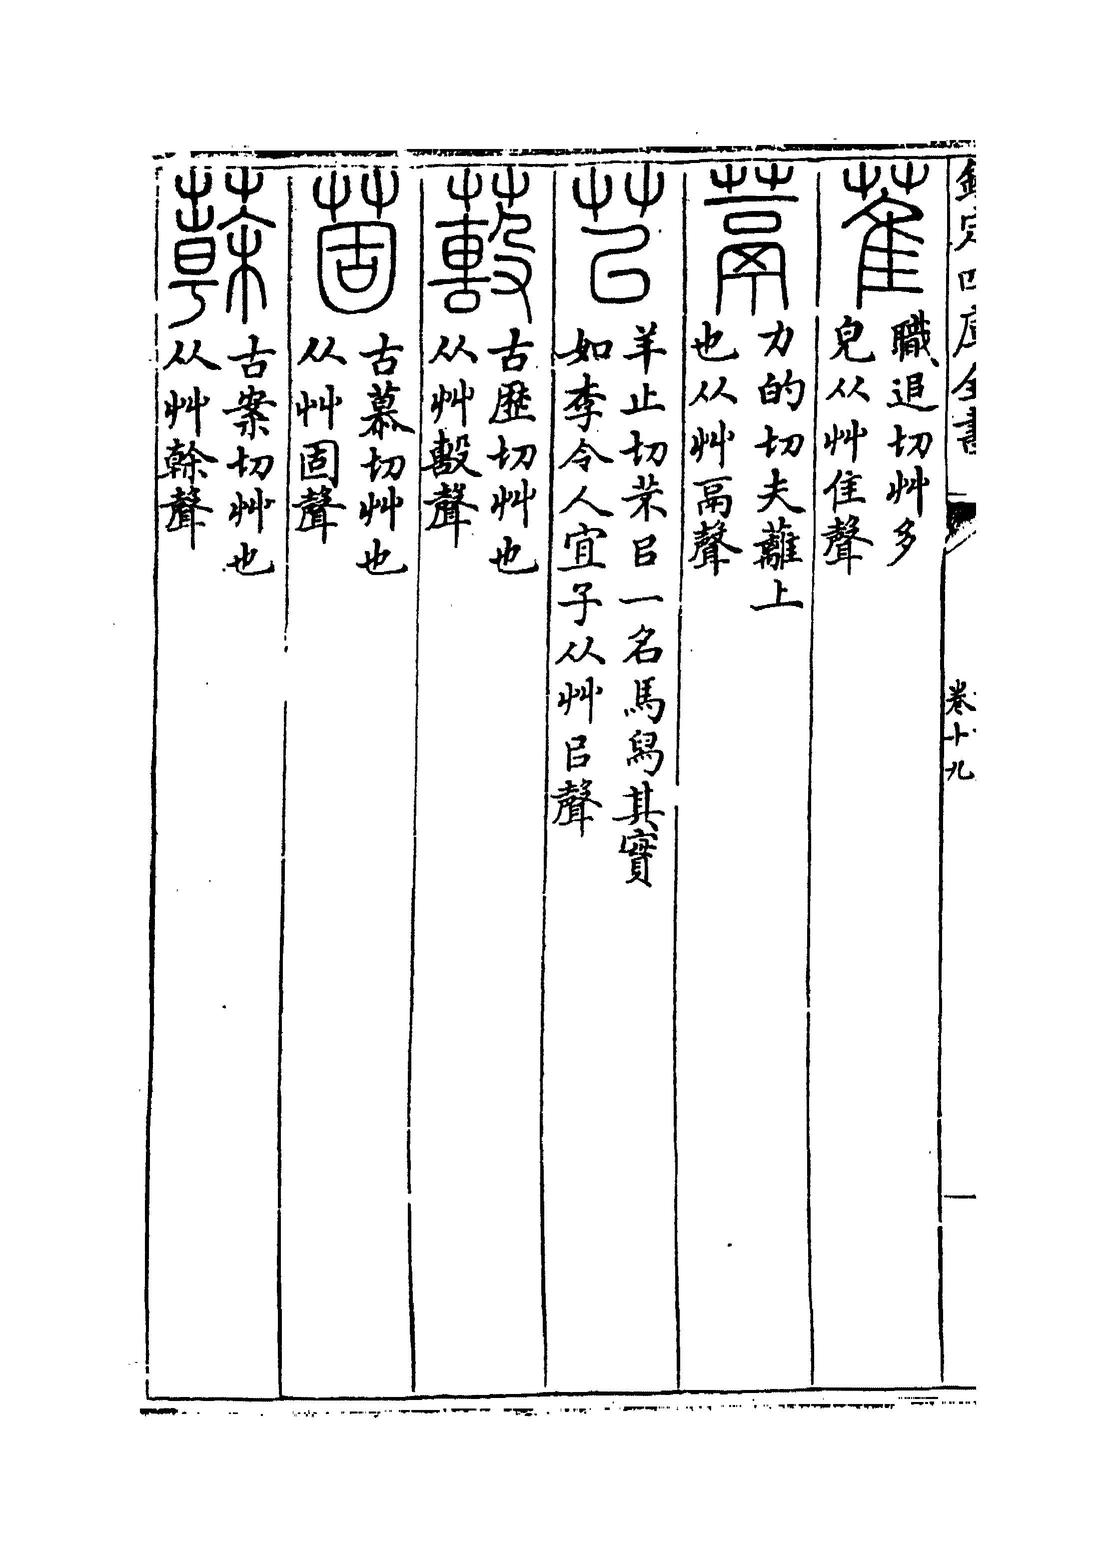 欽定四庫全書
卷十九
萑
職追切艸多
皃从艸隹聲
䓪
力的切夫蘺上
也从艸鬲聲
苢
羊止切芣㠯一名馬舄其實
如李令人宜子从艸㠯聲
藙
古歷切艸也
从艸毄聲
䓢
古慕切艸也
从艸固聲
䔿
古案切艸也
从艸榦聲